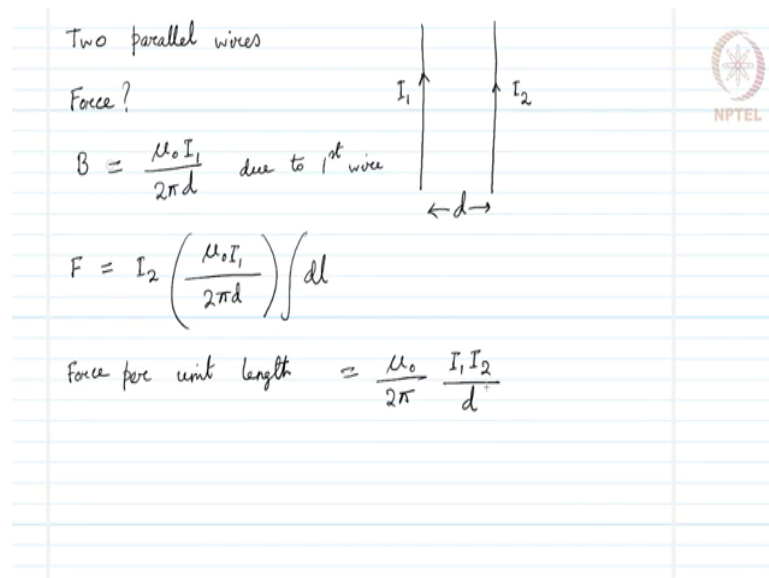 Two parallel wires
Force?
I₁ I₂
NPTEL
B = μ₀I₁ / 2πd due to 1st wire
←d→
F = I₂ (μ₀I₁ / 2πd) ∫dl
Force per unit length = μ₀ / 2π I₁I₂ / d